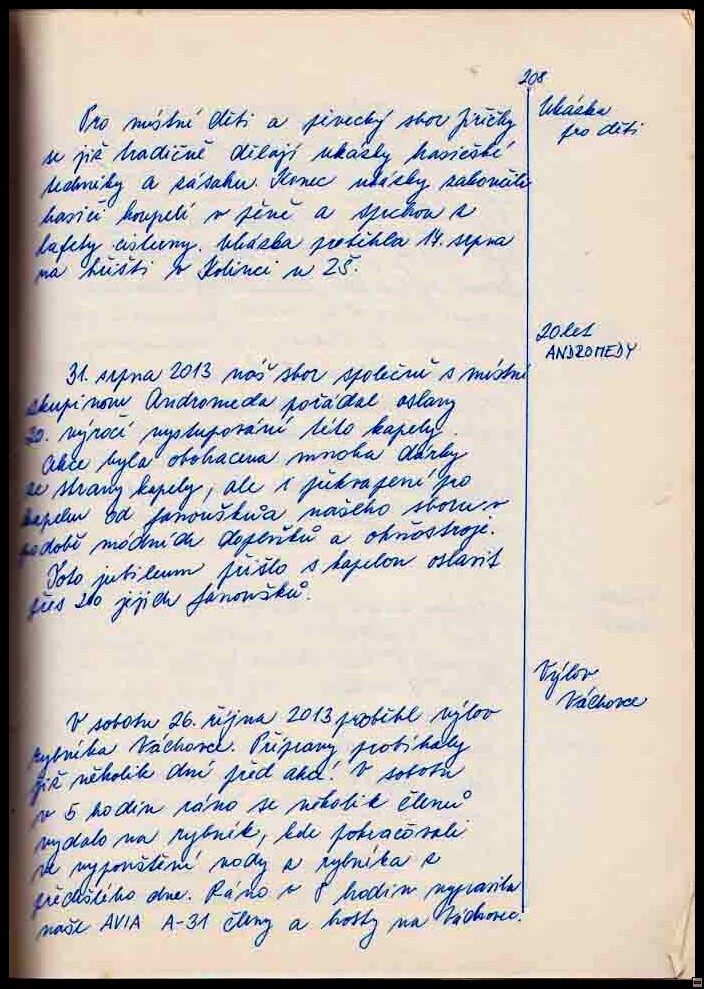 208
Ukázka
pro děti
Pro místní děti a pěvecký sbor Jiřičky
se již tradičně dělají ukázky hasičské
techniky a zásahu. Konec ukázky zakončili
hasiči koupelí v pěně a sprchou z
lafety cisterny. Ukázka proběhla 17. srpna
na hřišti v Kolinci u ZŠ.
20 let
ANDROMEDY
31. srpna 2013 náš sbor společně s místní
skupinou Andromeda pořádal oslavy
20. výročí vystupování této kapely.
Akce byla obohacena mnoha dárky
ze strany kapely, ale i překvapení pro
kapelu od fanoušků našeho sboru v
podobě módních doplňků a ohňostroje.
Toto jubileum přišlo s kapelou oslavit
přes 200 jejich fanoušků.
Výlov
Váchovce
V sobotu 26. října 2013 proběhl výlov
rybníka Váchovce. Přípravy probíhaly
již několik dní před akcí. V sobotu
v 5 hodin ráno se několik členů
vydalo na rybník, kde pokračovali
ve vypouštění vody z rybníka z
předešlého dne. Ráno v 8 hodin vypravila
naše AVIA A-31 členy a hosty na Váchovec.